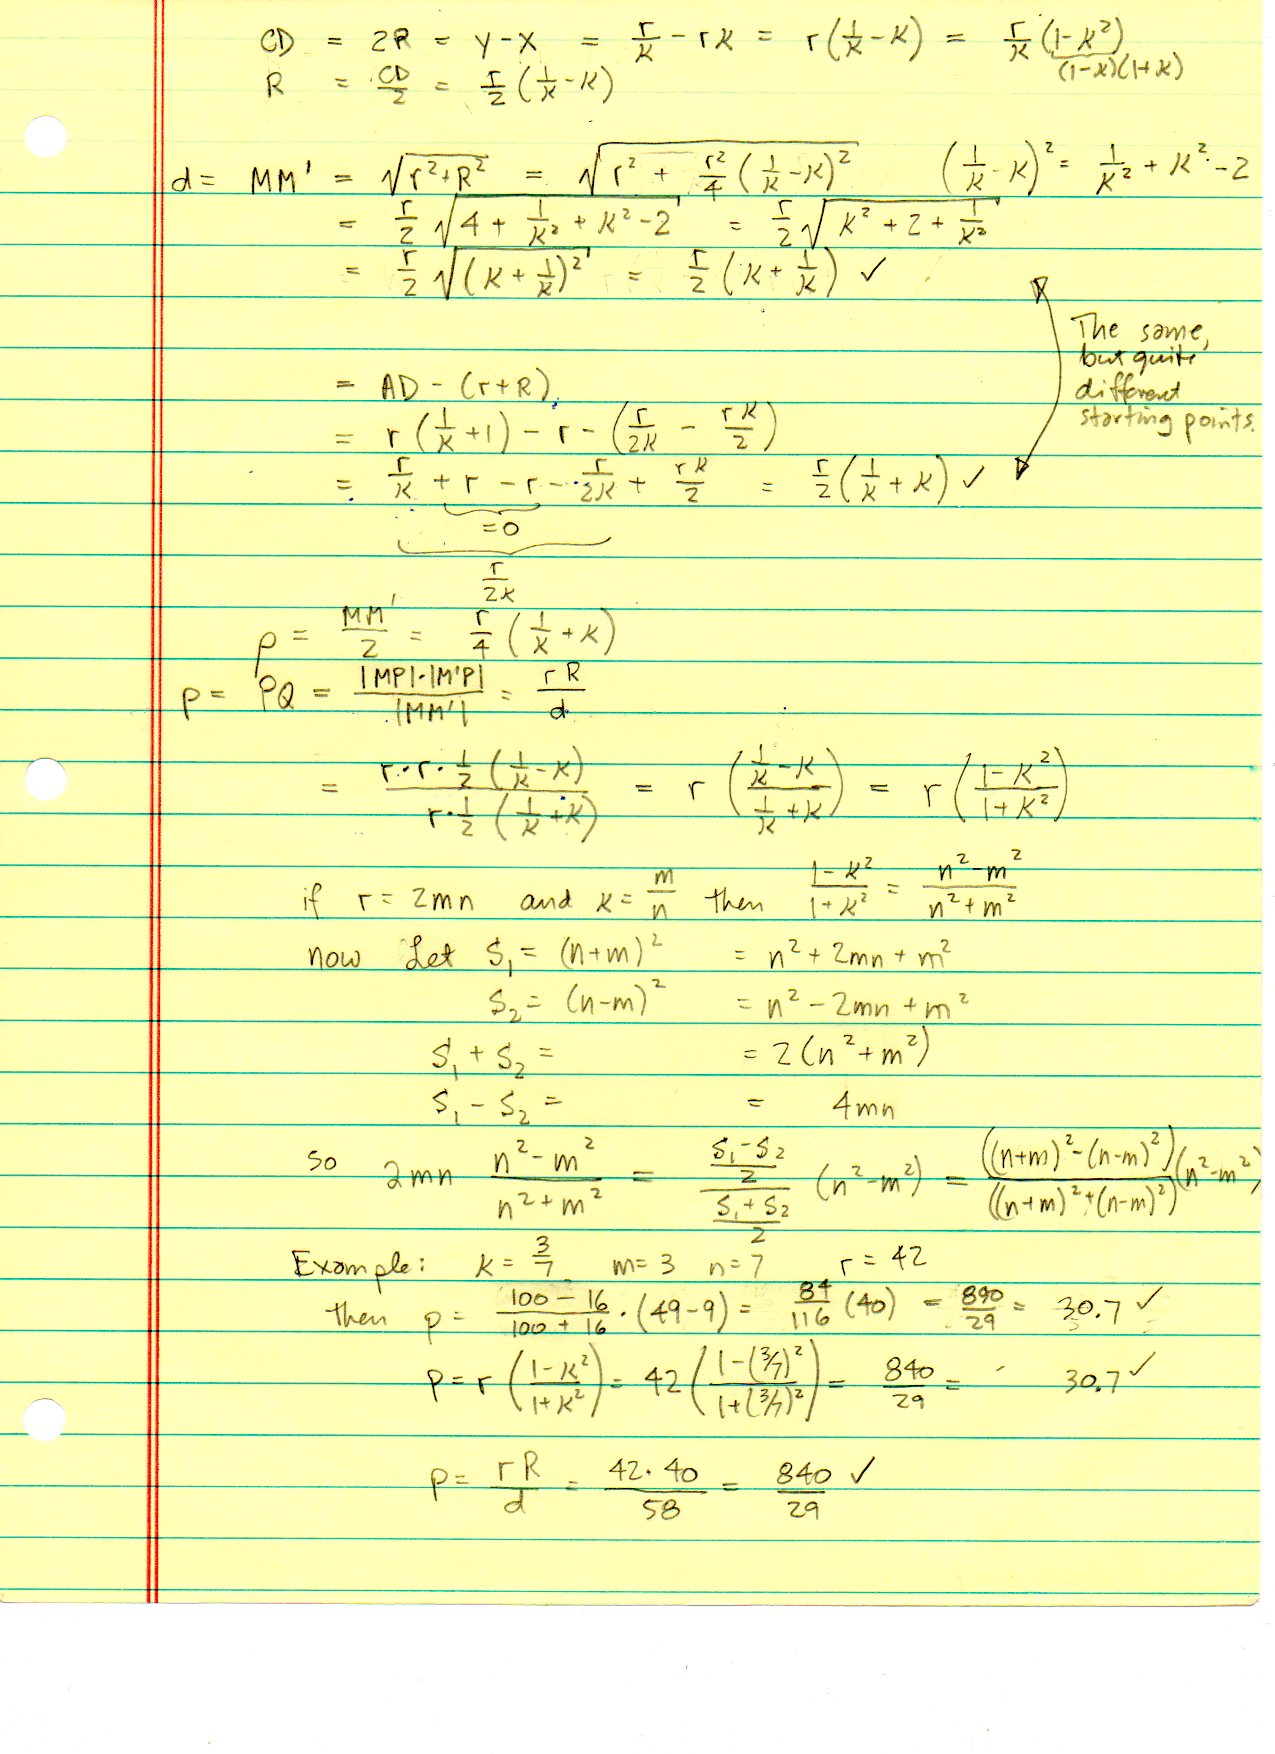 CD = 2R = y-x = r/k - rk = r(1/k - k) = r/k (1-k²)
(1-k)(1+k)
R = CD/2 = r/2 (1/k - k)
d = MM' = √(r²+R²) = √(r² + r²/4 (1/k - k)²) (1/k - k)² = 1/k² + k² - 2
= r/2 √(4 + 1/k² + k² - 2) = r/2 √(k² + 2 + 1/k²)
= r/2 √((k + 1/k)²) = r/2 (k + 1/k) ✓
The same,
but quite
different
starting points.
= AD - (r+R)
= r(1/k + 1) - r - (r/2k - rk/2)
= r/k + r - r - r/2k + rk/2 = r/2 (1/k + k) ✓
=0
r/2k
ρ = MM'/2 = r/4 (1/k + k)
p = PQ = |MP|·|M'P| / |MM'| = rR/d
= r·r·1/2 (1/k - k) / r·1/2 (1/k + k) = r ((1/k - k)/(1/k + k)) = r ((1-k²)/(1+k²))
if r = 2mn and k = m/n then (1-k²)/(1+k²) = (n²-m²)/(n²+m²)
now Let S₁ = (n+m)² = n² + 2mn + m²
S₂ = (n-m)² = n² - 2mn + m²
S₁ + S₂ = = 2(n²+m²)
S₁ - S₂ = = 4mn
so 2mn (n²-m²)/(n²+m²) = ((S₁-S₂)/2)/((S₁+S₂)/2) (n²-m²) = ((n+m)²-(n-m)²)/((n+m)²+(n-m)²) (n²-m²)
Example: k = 3/7 m=3 n=7 r = 42
then p = (100-16)/(100+16) · (49-9) = 84/116 (40) = 840/29 = 30.7 ✓
p = r ((1-k²)/(1+k²)) = 42 ((1-(3/7)²)/(1+(3/7)²)) = 840/29 = 30.7 ✓
p = rR/d = 42·40/58 = 840/29 ✓